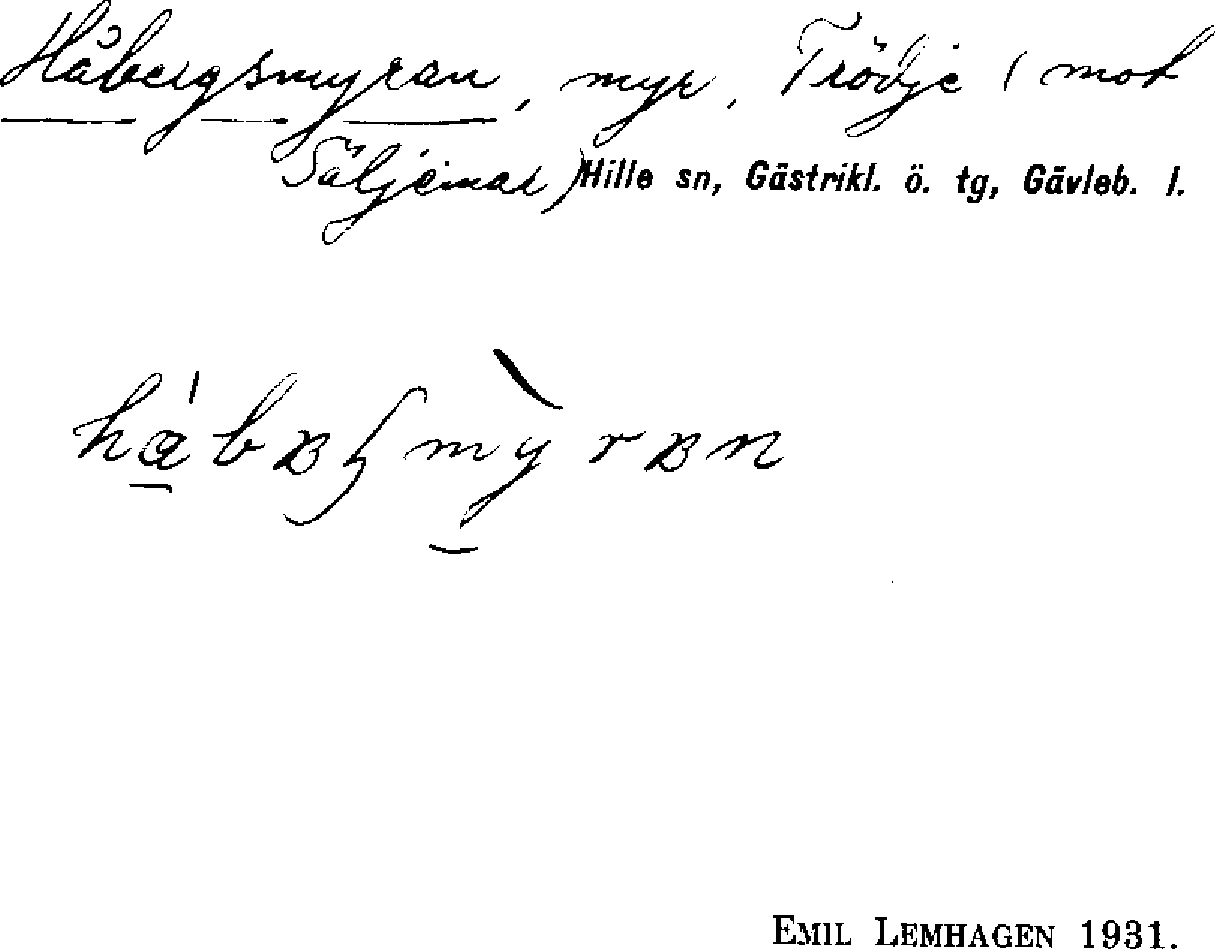 Håbergsmyran, myr, Trödje (mot
Säljemar) Hille sn, Gästrikl. ö. tg, Gävleb. l.
EMIL LEMHAGEN 1931.